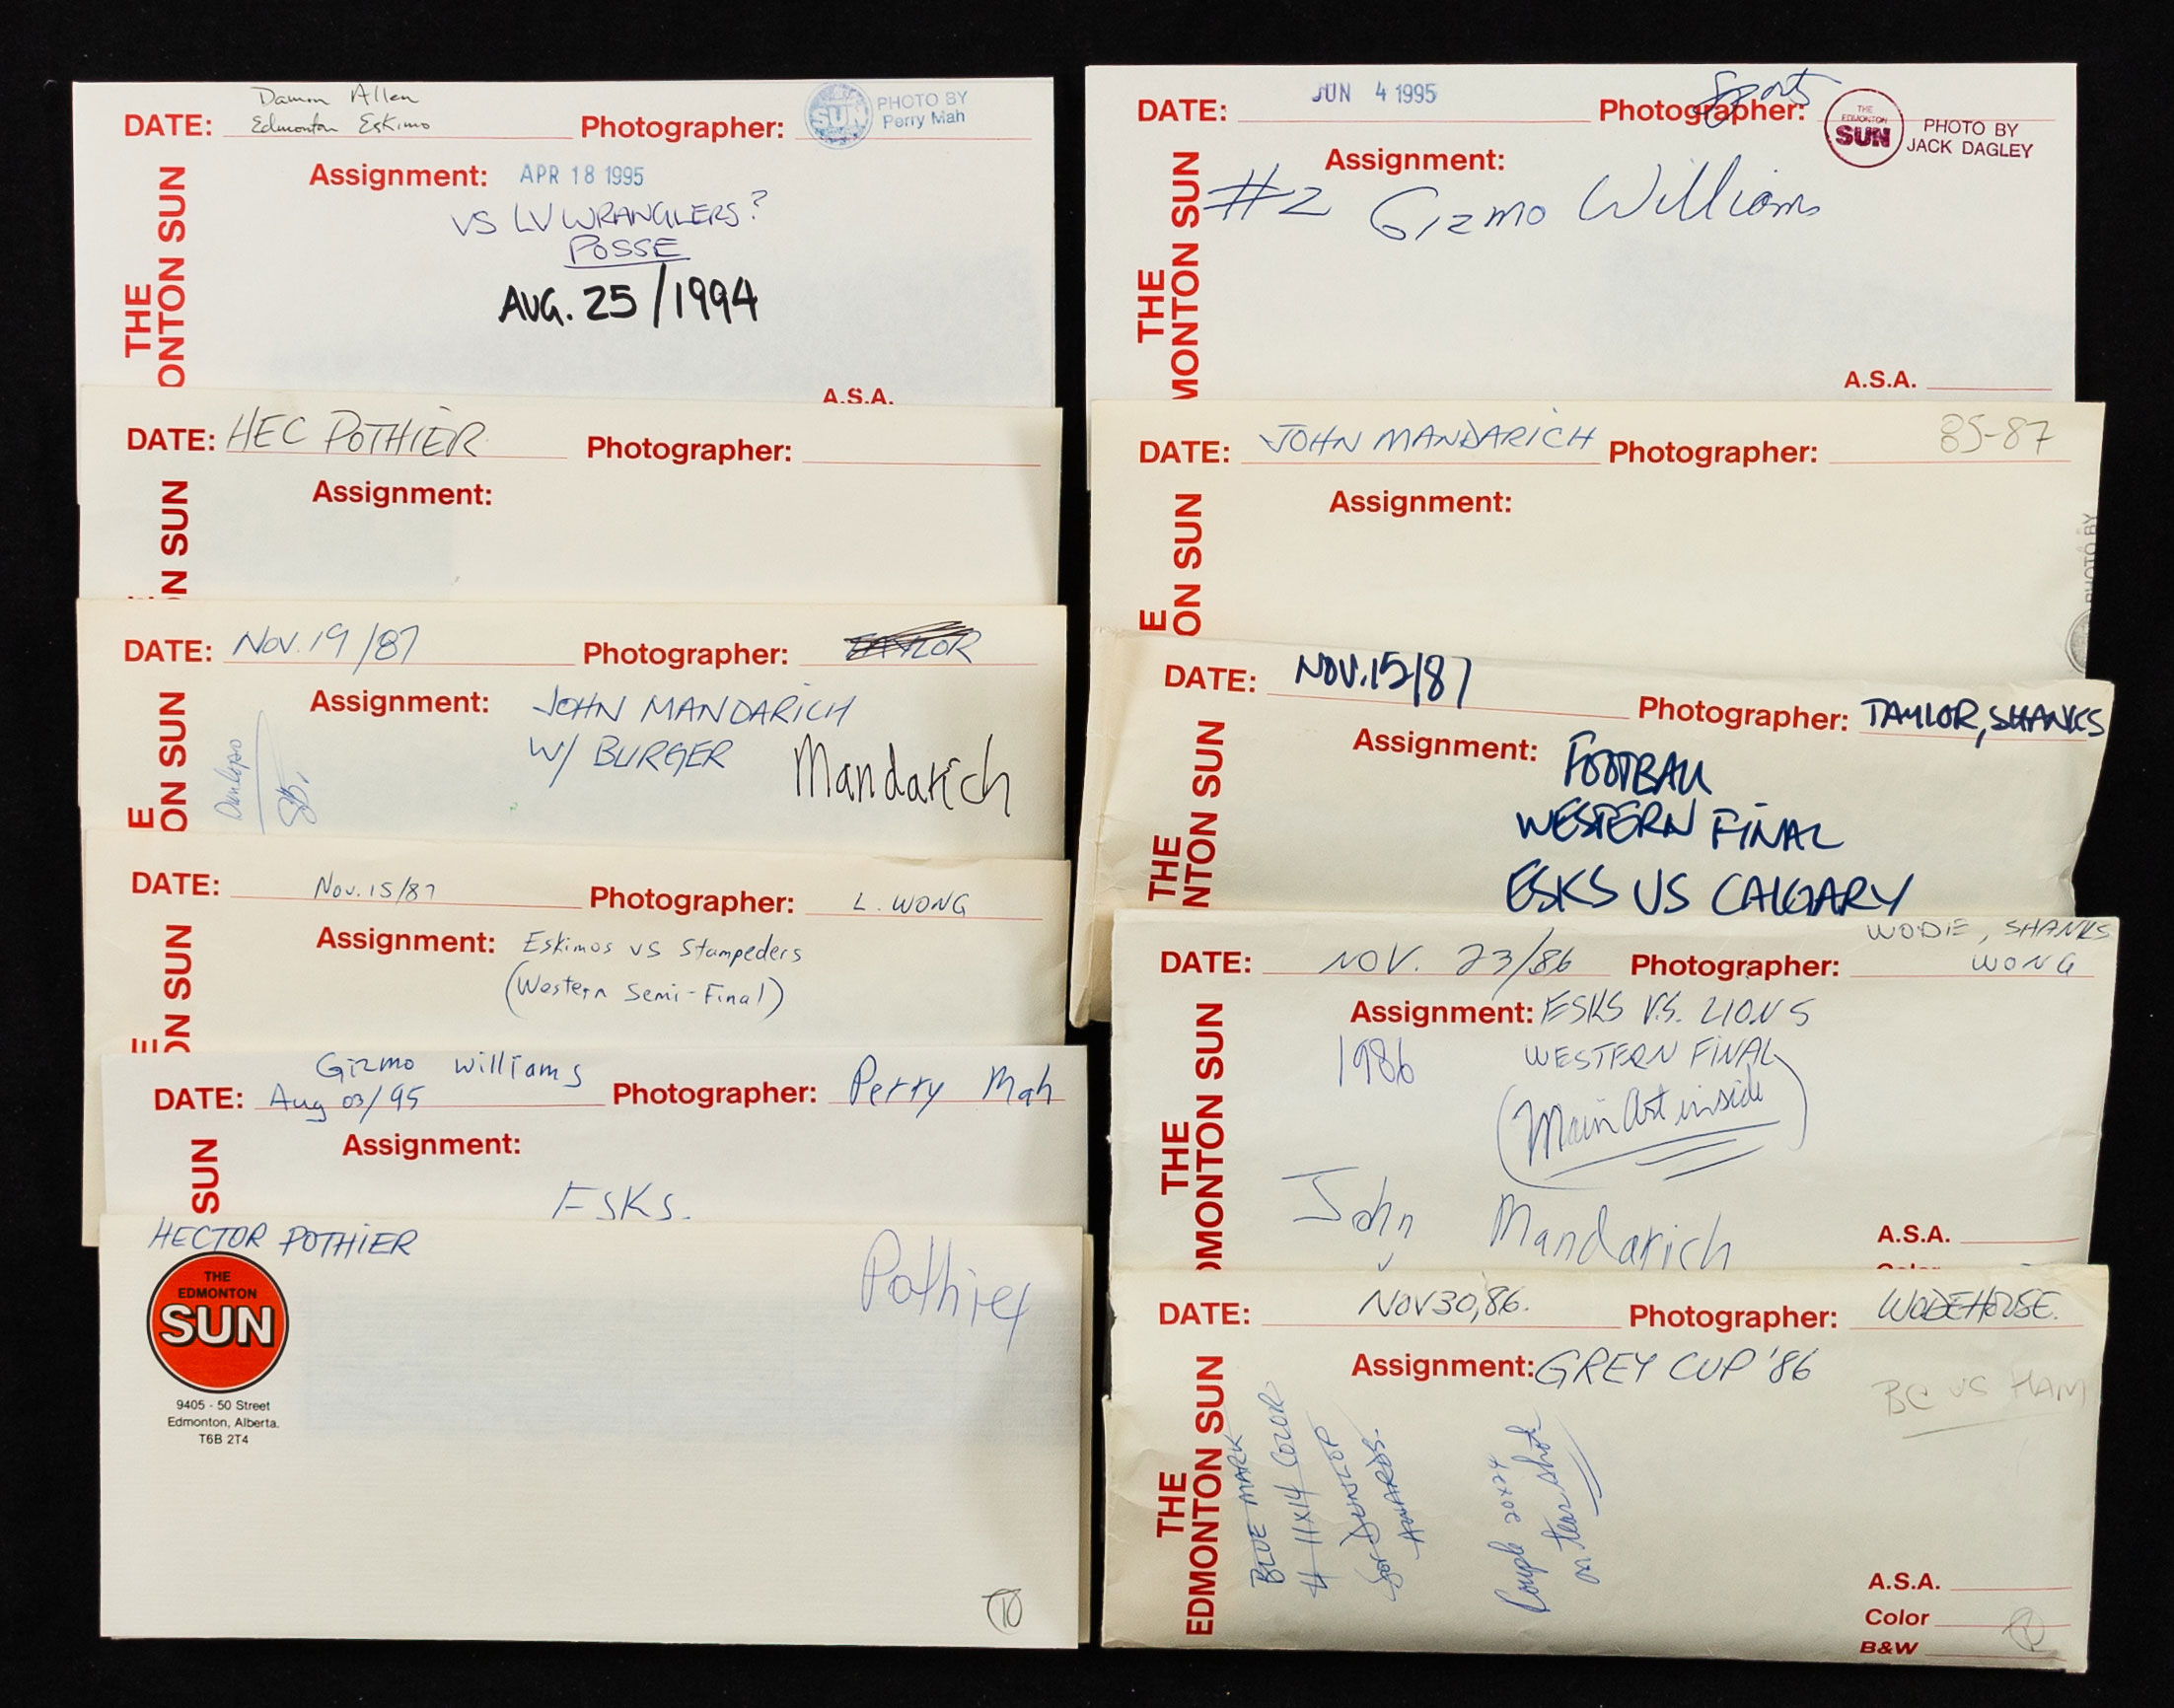 Damon Allen
DATE: Edmonton Eskimo Photographer: SUN PHOTO BY Perry Mah
Assignment: APR 18 1995
VS LV WRANGLERS?
POSSE
AUG. 25/1994
THE
ONTON SUN
A.S.A.
DATE: HEC POTHIER Photographer:
Assignment:
N SUN
DATE: NOV. 19/87 Photographer:
Assignment: JOHN MANDARICH
W/ BURGER Mandarich
E
ON SUN
DATE: Nov. 15/87 Photographer: L. WONG
Assignment: Eskimos vs Stampeders
(Western Semi-Final)
E
ON SUN
Gizmo Williams
DATE: Aug 03/95 Photographer: Perry Mah
Assignment:
ESKS.
SUN
HECTOR POTHIER
Pothier
THE
EDMONTON
SUN
9405 - 50 Street
Edmonton, Alberta.
T6B 2T4
10
JUN 4 1995 Sports
DATE: Photographer: THE EDMONTON SUN PHOTO BY
JACK DAGLEY
Assignment:
#2 Gizmo Williams
THE
MONTON SUN
A.S.A.
DATE: JOHN MANDARICH Photographer: 85-87
Assignment:
E
ON SUN
PHOTO BY
DATE: NOV. 15/87 Photographer: TAYLOR, SHANKS
Assignment: FOOTBALL
WESTERN FINAL
ESKS VS CALGARY
THE
NTON SUN
WODIE, SHANKS
DATE: NOV. 23/86 Photographer: WONG
Assignment: ESKS V.S. LIONS
1986 WESTERN FINAL
(Main Art inside)
John Mandarich
THE
DMONTON SUN
A.S.A.
Color
DATE: NOV 30, 86. Photographer: WODEHOUSE.
Assignment: GREY CUP '86
BC VS HAM
BLUE MARK
# 11x14 COLOR
for DUNLOP
AWARDS.
Couple 20x24
on tear shot
THE
EDMONTON SUN
A.S.A.
Color
B&W